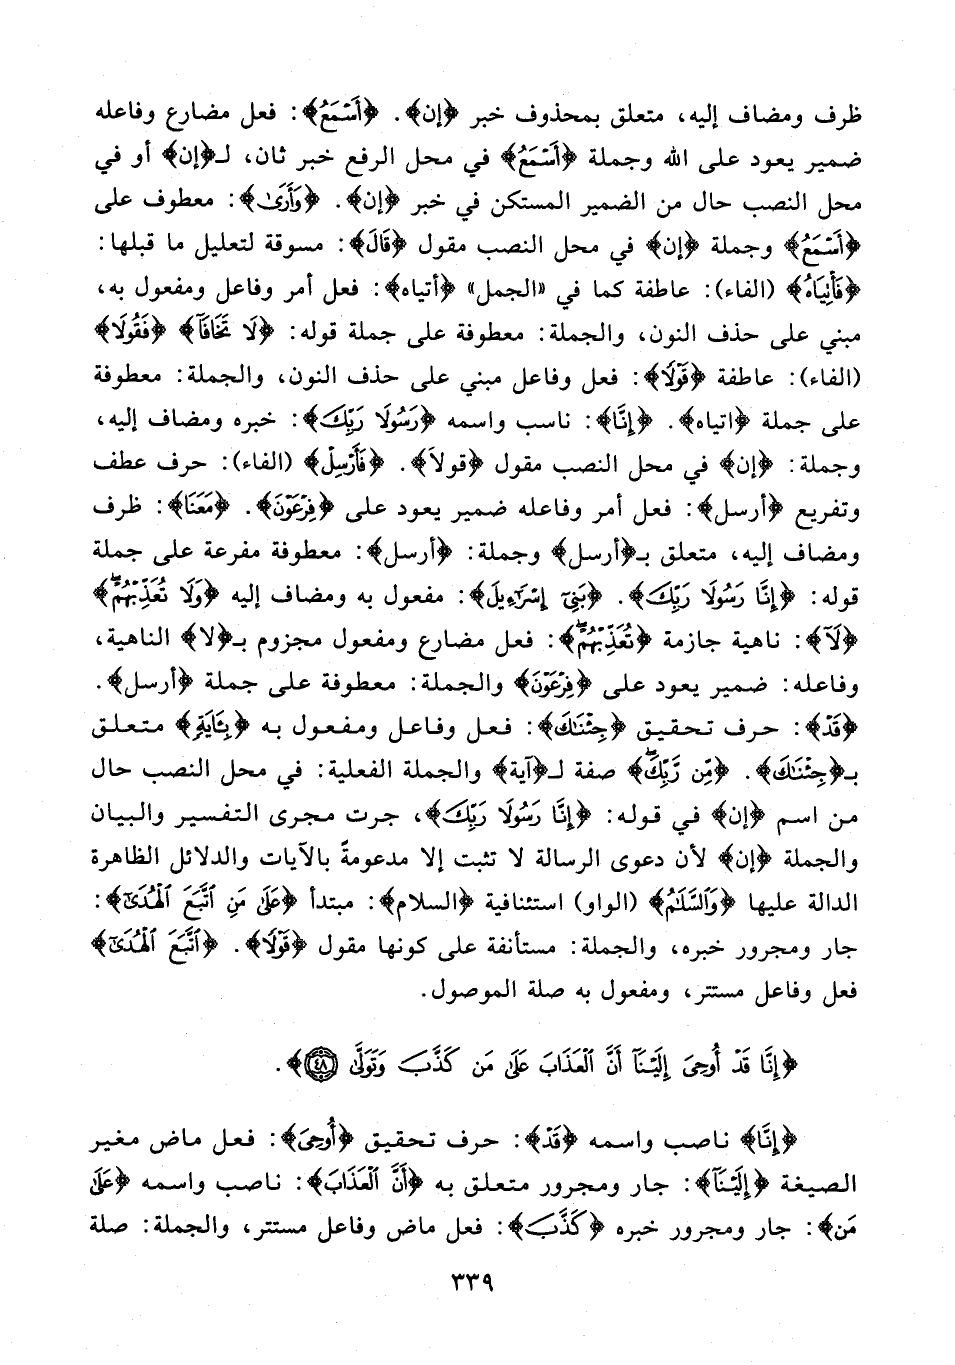 ظرف ومضاف إليه، متعلق بمحذوف خبر ﴿إن﴾. ﴿أَسْمَعُ﴾: فعل مضارع وفاعله
ضمير يعود على الله وجملة ﴿أَسْمَعُ﴾ في محل الرفع خبر ثان، لـ﴿إن﴾ أو في
محل النصب حال من الضمير المستكن في خبر ﴿إن﴾. ﴿وَأَرَىٰ﴾: معطوف على
﴿أَسْمَعُ﴾ وجملة ﴿إن﴾ في محل النصب مقول ﴿قَالَ﴾: مسوقة لتعليل ما قبلها:
﴿فَأْتِيَاهُ﴾ (الفاء): عاطفة كما في «الجمل» ﴿أتياه﴾: فعل أمر وفاعل ومفعول به،
مبني على حذف النون، والجملة: معطوفة على جملة قوله: ﴿لَا تَخَافَآ﴾ ﴿فَقُولَآ﴾
(الفاء): عاطفة ﴿قُولَآ﴾: فعل وفاعل مبني على حذف النون، والجملة: معطوفة
على جملة ﴿اتياه﴾. ﴿إِنَّا﴾: ناسب واسمه ﴿رَسُولَا رَبِّكَ﴾: خبره ومضاف إليه،
وجملة: ﴿إن﴾ في محل النصب مقول ﴿قولاَ﴾. ﴿فَأَرْسِلْ﴾ (الفاء): حرف عطف
وتفريع ﴿أرسل﴾: فعل أمر وفاعله ضمير يعود على ﴿فِرْعَوْنَ﴾. ﴿مَعَنَا﴾: ظرف
ومضاف إليه، متعلق بـ﴿أرسل﴾ وجملة: ﴿أرسل﴾: معطوفة مفرعة على جملة
قوله: ﴿إِنَّا رَسُولَا رَبِّكَ﴾. ﴿بَنِىٓ إِسْرَٰٓءِيلَ﴾: مفعول به ومضاف إليه ﴿وَلَا تُعَذِّبْهُمْۖ﴾
﴿لَآ﴾: ناهية جازمة ﴿تُعَذِّبْهُمْۖ﴾: فعل مضارع ومفعول مجزوم بـ﴿لا﴾ الناهية،
وفاعله: ضمير يعود على ﴿فِرْعَوْنَ﴾ والجملة: معطوفة على جملة ﴿أرسل﴾.
﴿قَدْ﴾: حرف تحقيق ﴿جِئْنَٰكَ﴾: فعل وفاعل ومفعول به ﴿بِـَٔايَةٍ﴾ متعلق
بـ﴿جِئْنَٰكَ﴾. ﴿مِّن رَّبِّكَۖ﴾ صفة لـ﴿آية﴾ والجملة الفعلية: في محل النصب حال
من اسم ﴿إن﴾ في قوله: ﴿إِنَّا رَسُولَا رَبِّكَ﴾، جرت مجرى التفسير والبيان
والجملة ﴿إن﴾ لأن دعوى الرسالة لا تثبت إلا مدعومةً بالآيات والدلائل الظاهرة
الدالة عليها ﴿وَٱلسَّلَٰمُ﴾ (الواو) استئنافية ﴿السلام﴾: مبتدأ ﴿عَلَىٰ مَنِ ٱتَّبَعَ ٱلْهُدَىٰٓ﴾:
جار ومجرور خبره، والجملة: مستأنفة على كونها مقول ﴿قُولَآ﴾. ﴿ٱتَّبَعَ ٱلْهُدَىٰٓ﴾
فعل وفاعل مستتر، ومفعول به صلة الموصول.
﴿إِنَّا قَدْ أُوحِىَ إِلَيْنَآ أَنَّ ٱلْعَذَابَ عَلَىٰ مَن كَذَّبَ وَتَوَلَّىٰ ٤٨﴾.
﴿إِنَّا﴾ ناصب واسمه ﴿قَدْ﴾: حرف تحقيق ﴿أُوحِىَ﴾: فعل ماض مغير
الصيغة ﴿إِلَيْنَآ﴾: جار ومجرور متعلق به ﴿أَنَّ ٱلْعَذَابَ﴾: ناصب واسمه ﴿عَلَىٰ
مَن﴾: جار ومجرور خبره ﴿كَذَّبَ﴾: فعل ماض وفاعل مستتر، والجملة: صلة
٣٣٩